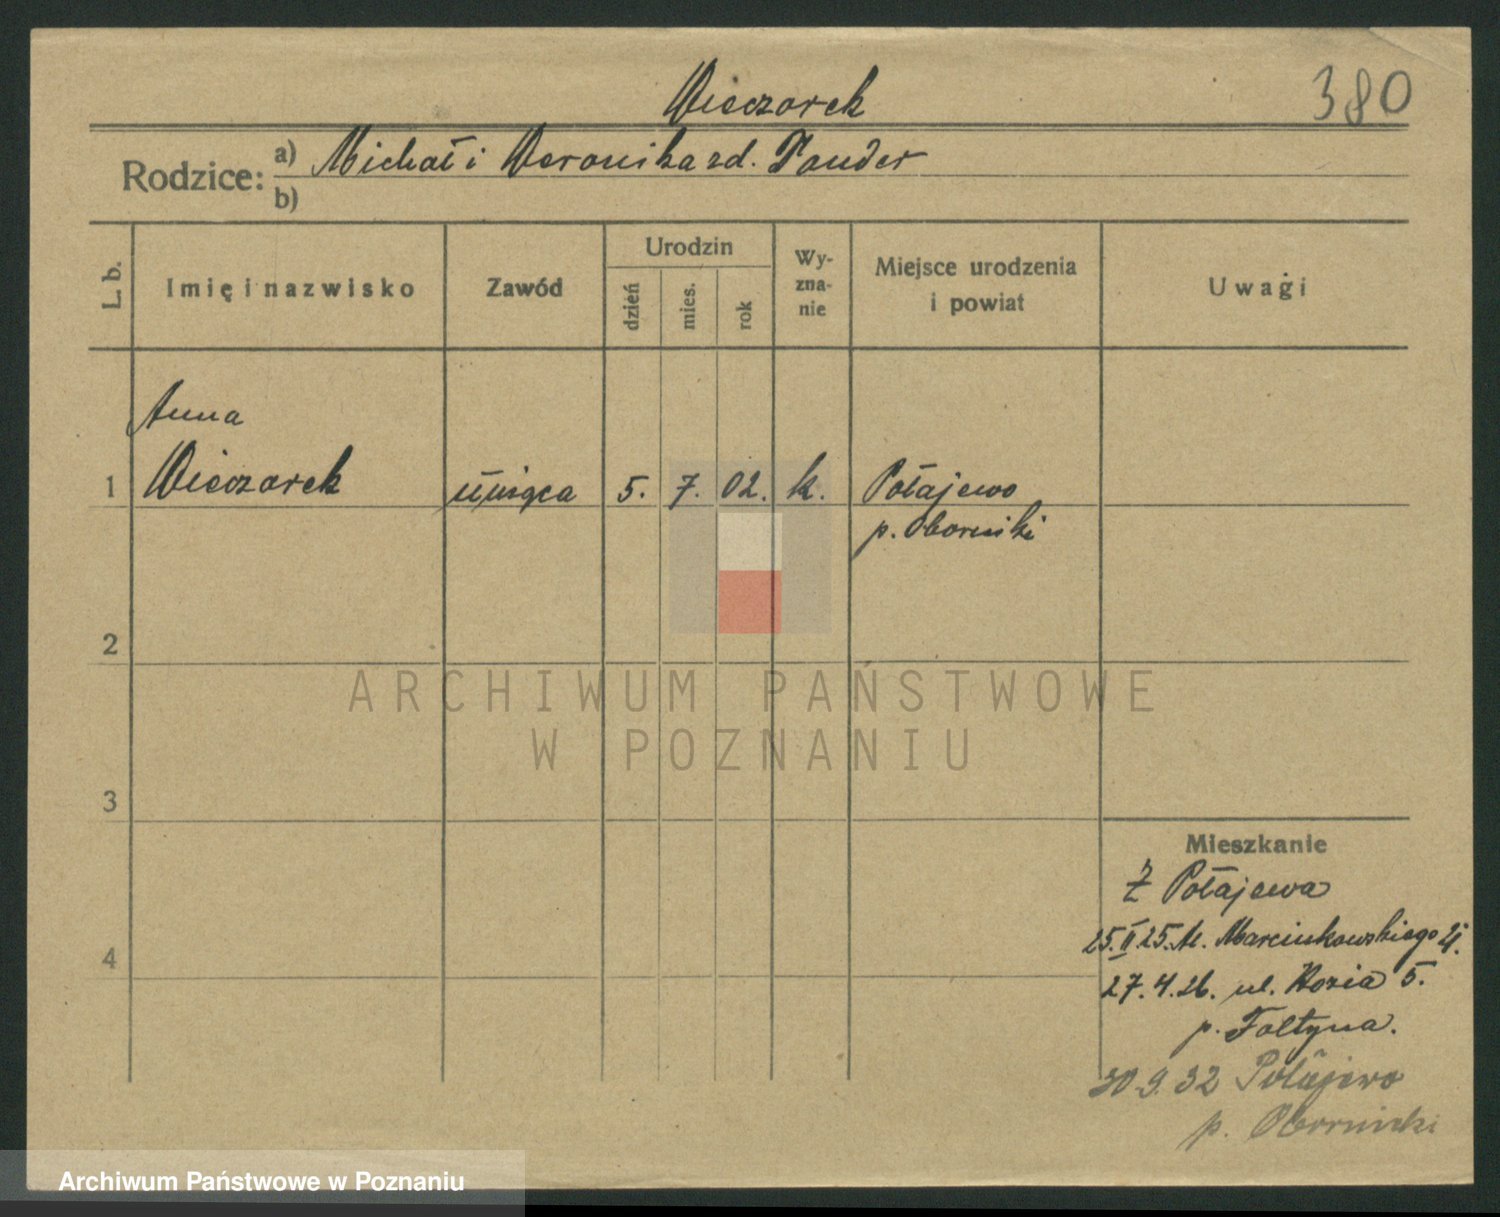 Wieczorek
380
Rodzice: a) Michał i Weronika zd. Tauder
b)
L. b.
Imię i nazwisko
Zawód
Urodzin
dzień
mies.
rok
Wy-
zna-
nie
Miejsce urodzenia
i powiat
Uwagi
Anna
1 Wieczorek służąca 5. 7. 02. k. Połajewo
p. Oborniki
2
ARCHIWUM PAŃSTWOWE
W POZNANIU
3
Mieszkanie
Z Połajewa
25.II 25. Al. Marcinkowskiego
4
27.4.26. ul. Kozia 5.
p. Foltyna.
30 9. 32 Połajewo
p. Oborniki
Archiwum Państwowe w Poznaniu